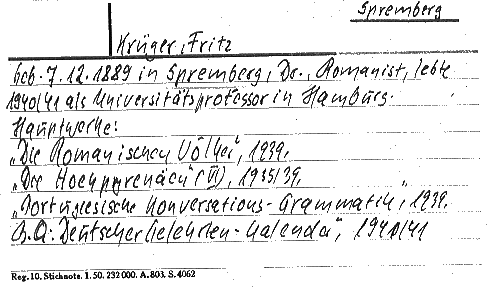 Spremberg
Krüger, Fritz
Geb. 7.12.1889 in Spremberg, Dr., Romanist, lebte
1940/41 als Universitätsprofessor in Hamburg.
Hauptwerke:
„Die Romanischen Völker", 1939.
„Die Hochpyrenäen" (VI), 1935/39.
„Portugiesische Konversations-Grammatik", 1939.
B.Q.: Deutscher Gelehrten-Kalender", 1940/41
Reg. 10. Stichnote. 1. 50. 232000. A. 803. S. 4062